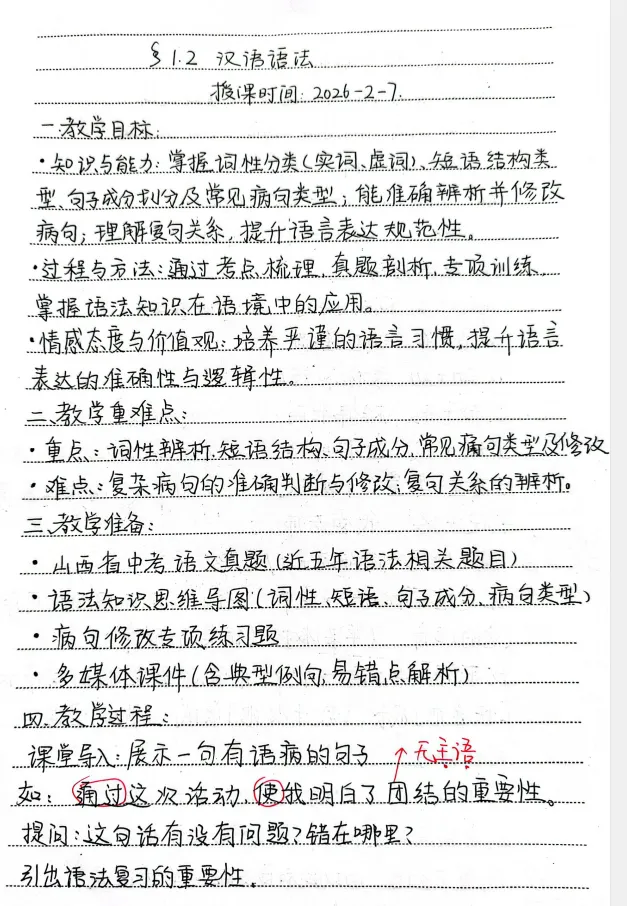 §1.2 汉语语法
授课时间: 2026-2-7.
一.教学目标:
·知识与能力:掌握词性分类(实词、虚词)、短语结构类
型、句子成分划分及常见病句类型;能准确辨析并修改
病句;理解复句关系,提升语言表达规范性。
·过程与方法:通过考点梳理,真题剖析,专项训练,
掌握语法知识在语境中的应用。
·情感态度与价值观:培养严谨的语言习惯,提升语言
表达的准确性与逻辑性。
二、教学重难点:
·重点:词性辨析、短语结构、句子成分、常见病句类型及修改
·难点:复杂病句的准确判断与修改;复句关系的辨析。
三、教学准备:
·山西省中考语文真题(近五年语法相关题目)
·语法知识思维导图(词性、短语、句子成分、病句类型)
·病句修改专项练习题
·多媒体课件(含典型例句,易错点解析)
四、教学过程:
课堂导入:展示一句有语病的句子 ↑无主语
如:通过这次活动,使我明白了团结的重要性。
提问:这句话有没有问题?错在哪里?
引出语法复习的重要性.